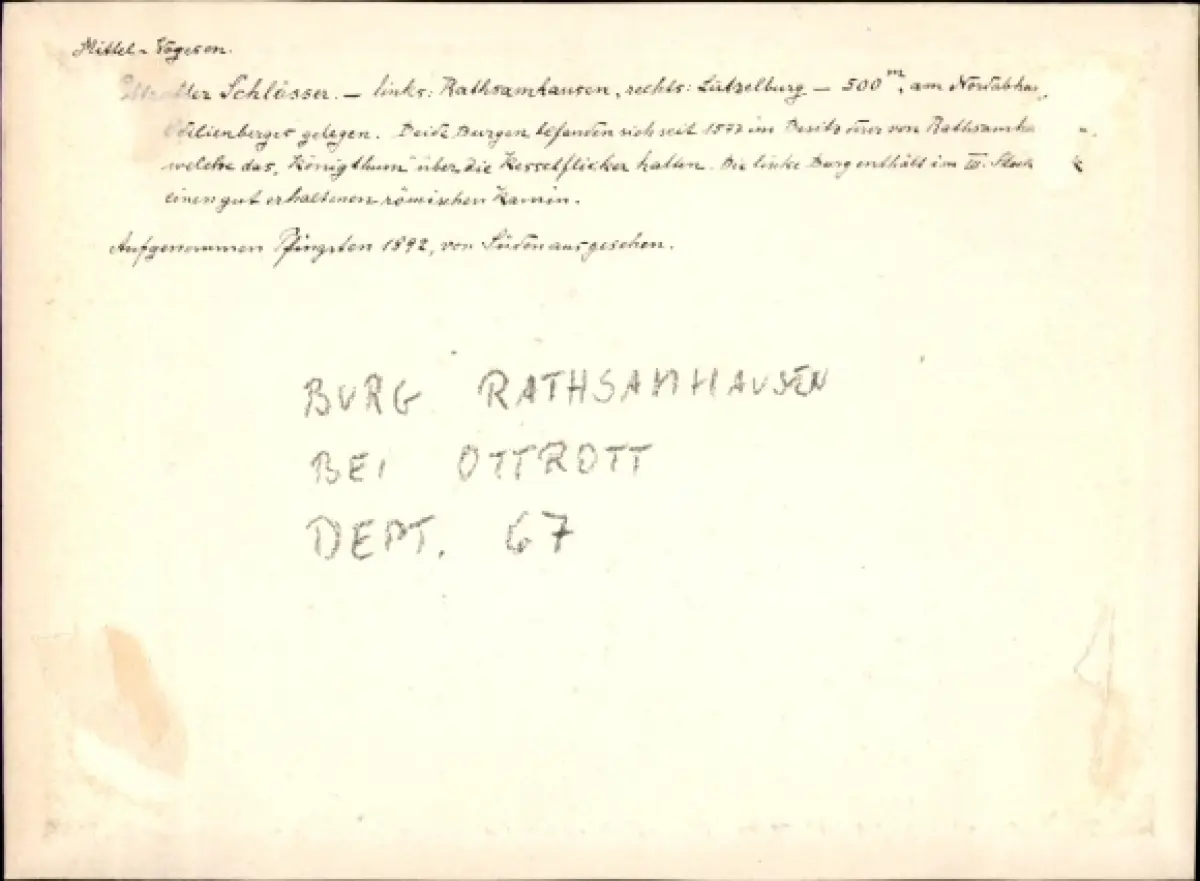 Mittel-Vogesen.
Schlösser. – links: Rathsamhausen, rechts: Lützelburg – 500 m, am Nordabhan
Odilienberges gelegen. Beide Burgen befanden sich seit 15 im Besitz derer von Rathsamha
welche das „Königthum" über die Kesselflicker hatten. Die linke Burg enthält im III. Stock
einen gut erhaltenen römischen Kamin.
Aufgenommen Pfingsten 1892, von Süden aus gesehen.
BURG RATHSAMHAUSEN
BEI OTTROTT
DEPT. 67